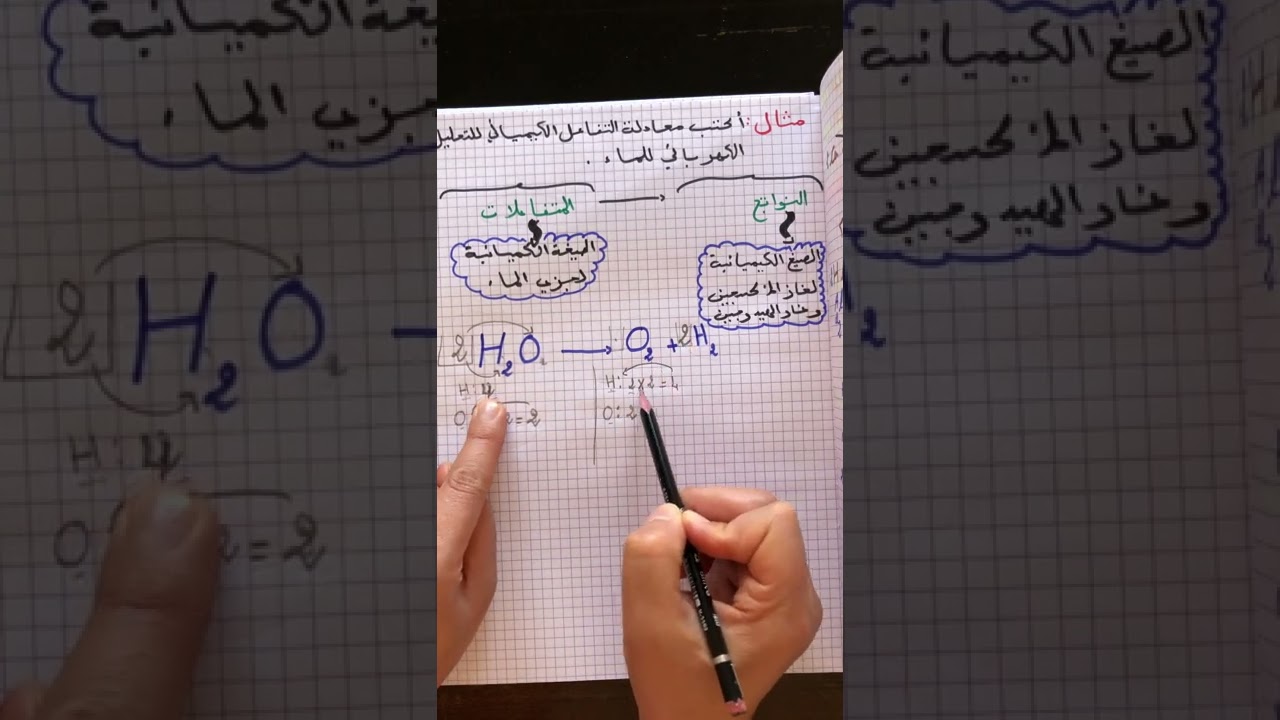 مثال: أكتب معادلة التفاعل الكيميائي للتحليل
الكهربائي للماء.
المتفاعلات → النواتج
الصيغة الكميائية
لجزيء الماء.
الصيغ الكيميائية
لغاز الأكسجين
وغاز الهيدروجين
2H₂O → O₂ + 2H₂
H: 4
O: 2 = 2
H: 2x2=4
O: 2